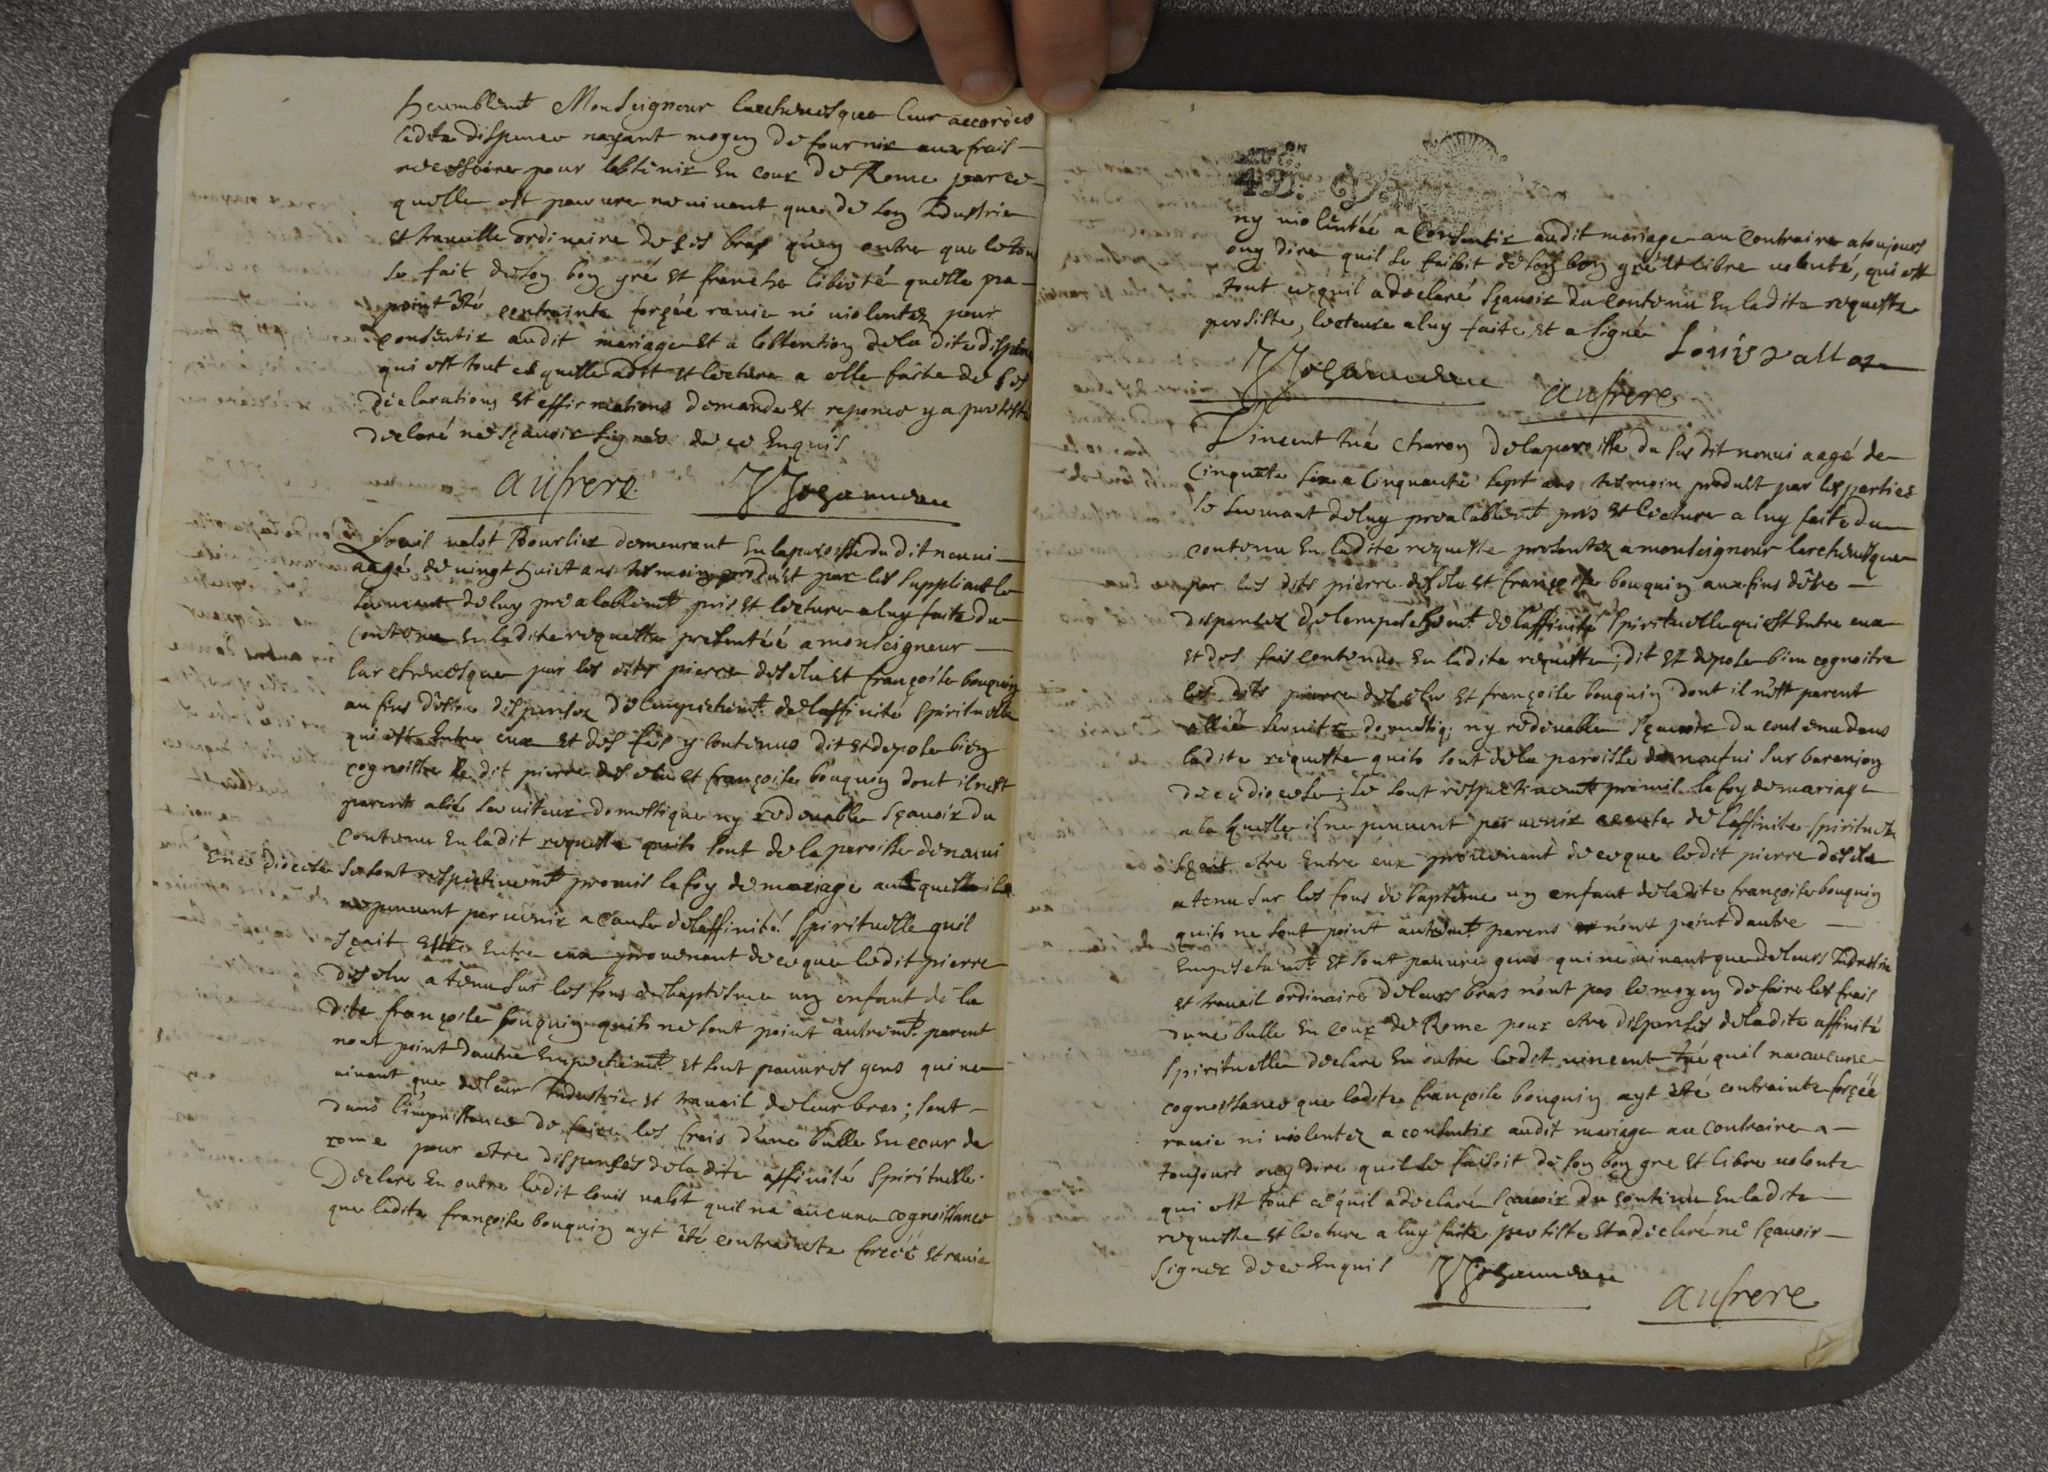 humblemt Monseigneur larchevesque leur accorder
ladite dispence nayant moyen de fournir aux frais
necessaires pour lobtenir En cour de Rome parce
quelle est pauvre ne vivant que de son Industrie
et travaille ordinaire de ses bras quen outre que le tout
se fait de son bon gré et franche liberté quelle na
point été contrainte forçée ravie ni violentez pour
consentir audit mariage et a lobtention de la dite dispence
qui est tout ce quelle a dit et lecture a elle faite de ses
declarations et affirmations demande et reponce y a persisté
declaré ne sçavoir signer de ce Enquis
aufrere Jojanneau
Louis valot Bourlier demeurant En la paroisse du dit neuvi
aagé de vingt huict ans tesmoin produit par les suppliant le
serment de luy prealablemt pris et lecture a luy faite du
contenu En ladite requette presentéé a monseigneur
larchevesque par les dits pierre deselu et françoise bouquin
au fins d'être dispensez de lempechemt de laffinité spirituelle
qui est Entre eux et des fais y contenus dit et depose bien
cognoistre le dit pierre deselu et françoise bouquin dont il nest
parent alié serviteur domestique ny redevable sçavoir du
contenu En ladit requeste quils sont de la paroisse de neuvi
En ce diocese se sont respectivemt promis la foy de mariage auquelle ils
ne peuvent parvenir a cause de laffinité spirituelle quil
sçait estre Entre eux provenant de ce que ledit pierre
deselu a tenu sur les fons de baptesme un enfant de la
dite françoise bouquin quils ne sont point autremt parent
nont point dautre Empechemt et sont pauvres gens qui ne
vivant que de leur Industrie et travail de leur bras; sont
dans l'impuissance de faire les frais d'une bulle En cour de
rome pour etre dispensés de la dite affinité spirituelle.
Declare En outre ledit louis valot quil na aucune cognoissance
que ladite françoise bouquin ayt été contrainte forcéé et ravie
ny violentéé a consentir audit mariage au contraire a toujours
ouy dire quil se faisoit de son bon gré et libre volonté, qui est
tout ce quil a declaré sçavoir du contenu En ladite requeste
persiste, lecture a luy faite, et a signé
Louis vallot
Jojanneau
aufrere
Vincent tué charon de la paroisse du sus dit neuvi aagé de
Cinquate six a Cinquante sept ans tesmoin produit par les parties
le serment de luy prealablemt pris et lecture a luy faite du
contenu En ladite requeste presentez a monseigneur larchevesque
par les dits pierre deselu et françoise bouquin aux fins d'être
dispensez de lempeschemt de laffinité spirituelle qui est Entre eux
et des fais contenus En ladite requeste; dit et depose bien cognoitre
les dits pierre deselu et françoise bouquin dont il n'est parent
allié servitr domestiq; ny redevable sçavoir du contenu dans
ladite requeste quils sont de la paroisse de neufui sur baranjon
de ce diocese; se sont respectivemt promis la foy de mariage
a la quelle il ne peuvent parvenir acause de laffinité spirituelle
sçait etre Entre eux provenant de ce que ledit pierre deselu
a tenu sur les fons de baptême un enfant de ladite françoise bouquin
quils ne sont point autremt parens et n'ont point dautre
Empeschemt et sont pauvre gens qui ne vivant que de leurs Industrie
et travail ordinaire de leurs bras n'ont pas le moyen de faire les frais
dune bulle En cour de Rome pour etre dispensés de ladite affinité
spirituelle declare En outre ledit vincent tué quil na aucune
cognoissance que ladite françoise bouquin ayt été contrainte forçéé
ravie ni violentez a consentir audit mariage au contraire a
toujours ouy dire quil se faisoit de son bon gre et libre volonte
qui est tout ce quil a declaré sçavoir du contenu En ladite
requeste et lecture a luy faite persiste et a declaré ne sçavoir
signer de ce Enquis Jojanneau
aufrere